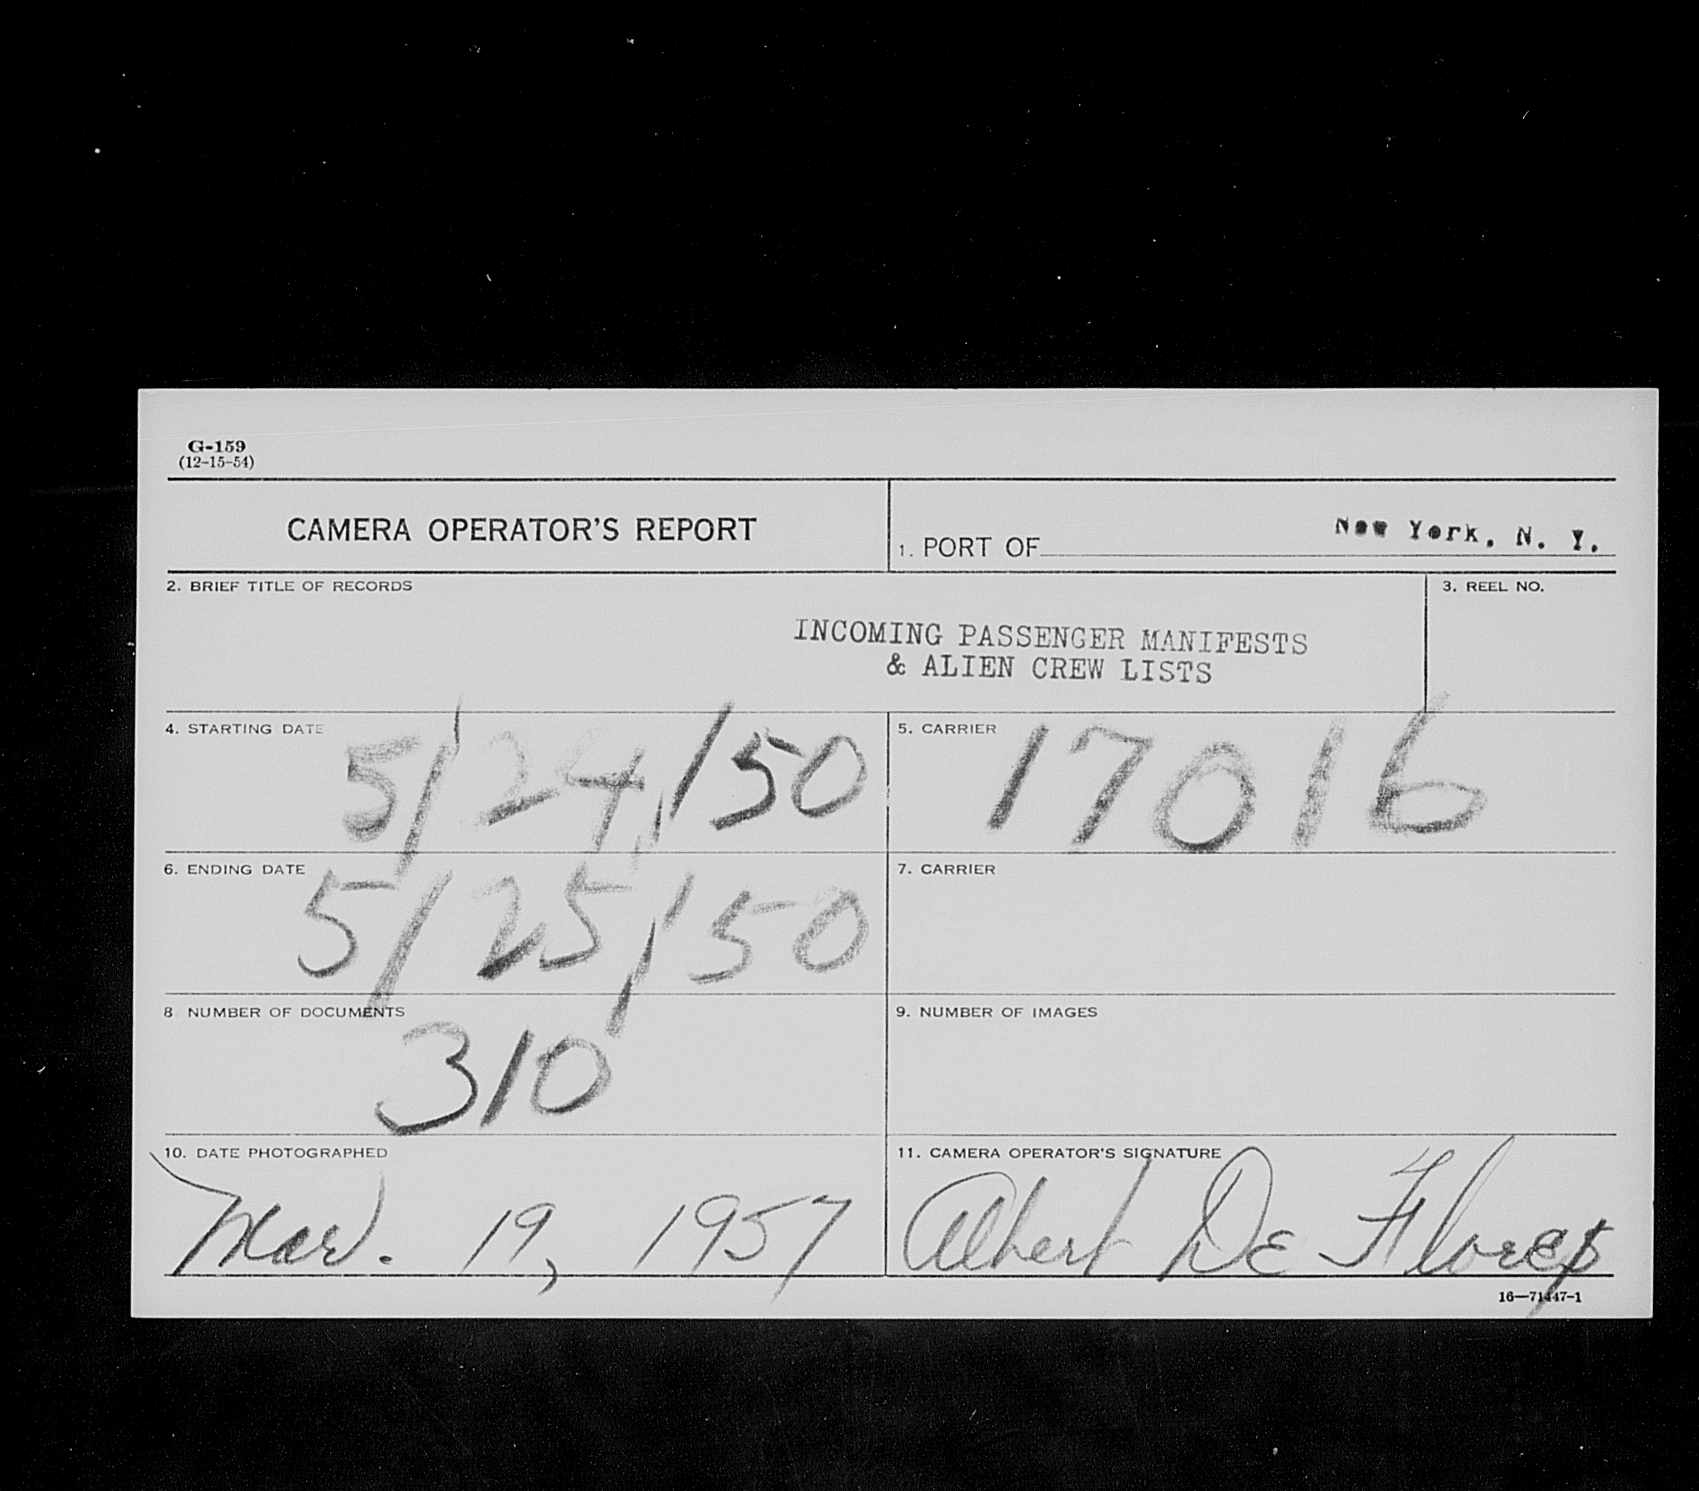 G-159
(12-15-54)
CAMERA OPERATOR'S REPORT
1. PORT OF New York, N. Y.
2. BRIEF TITLE OF RECORDS
INCOMING PASSENGER MANIFESTS
& ALIEN CREW LISTS
3. REEL NO.
4. STARTING DATE
5/24/50
5. CARRIER
17016
6. ENDING DATE
5/25/50
7. CARRIER
8 NUMBER OF DOCUMENTS
310
9. NUMBER OF IMAGES
10. DATE PHOTOGRAPHED
Mar. 19, 1957
11. CAMERA OPERATOR'S SIGNATURE
Albert De Flores
16—71447-1